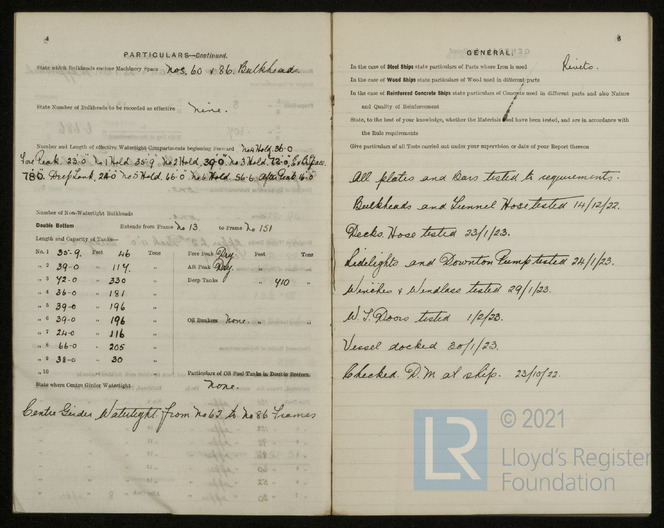 4
PARTICULARS—Continued.
State which Bulkheads enclose Machinery Space Nos. 60 & 86. Bulkheads
State Number of Bulkheads to be recorded as effective Nine.
Number and Length of effective Watertight Compartments beginning Forward No 4 Hold. 36.0
Fore Peak. 23.0 No 1 Hold. 35.9. No 2 Hold. 39.0 No 3 Hold. 72.0.
78.0. Deep Tank. 24.0 No 5 Hold. 66.0 No 6 Hold. 56.6 After Peak
Number of Non-Watertight Bulkheads
Double Bottom Extends from Frame No 13 to Frame No 151
Length and Capacity of Tanks—
No. 1 35-9. Feet 46 Tons Fore Peak Dry. Feet Tons
„ 2 39-0 „ 117. „ Aft Peak Dry. „ „
„ 3 42-0 „ 330 „ Deep Tanks „ 410 „
„ 4 36-0 „ 181 „
„ 5 39-0 „ 196 „
„ 6 39-0 „ 196 „ Oil Bunkers None. „ „
„ 7 24-0 „ 116 „
„ 8 66-0 „ 205 „
„ 9 38-0 „ 30 „
„ 10 Particulars of Oil Fuel Tanks in Double Bottom.
State where Centre Girder Watertight None.
Centre Girder Watertight from No 62 to No 86 Frames
GENERAL.
In the case of Steel Ships state particulars of Parts where Iron is used Rivets.
In the case of Wood Ships state particulars of Wood used in different parts
In the case of Reinforced Concrete Ships state particulars of Concrete used in different parts and also Nature
and Quality of Reinforcement
State, to the best of your knowledge, whether the Materials used have been tested, and are in accordance with
the Rule requirements
Give particulars of all Tests carried out under your supervision or date of your Report thereon
All plates and Bars tested to requirements.
Bulkheads and Tunnel Hose tested 14/12/22.
Decks Hose tested 23/1/23.
Sidelights and Downton Pump tested 24/1/23.
Winches & Windlass tested 29/1/23.
W.T. Doors tested 1/2/23.
Vessel docked 30/1/23.
Checked D.M at ship. 23/10/22.
LR
© 2021
Lloyd's Register
Foundation